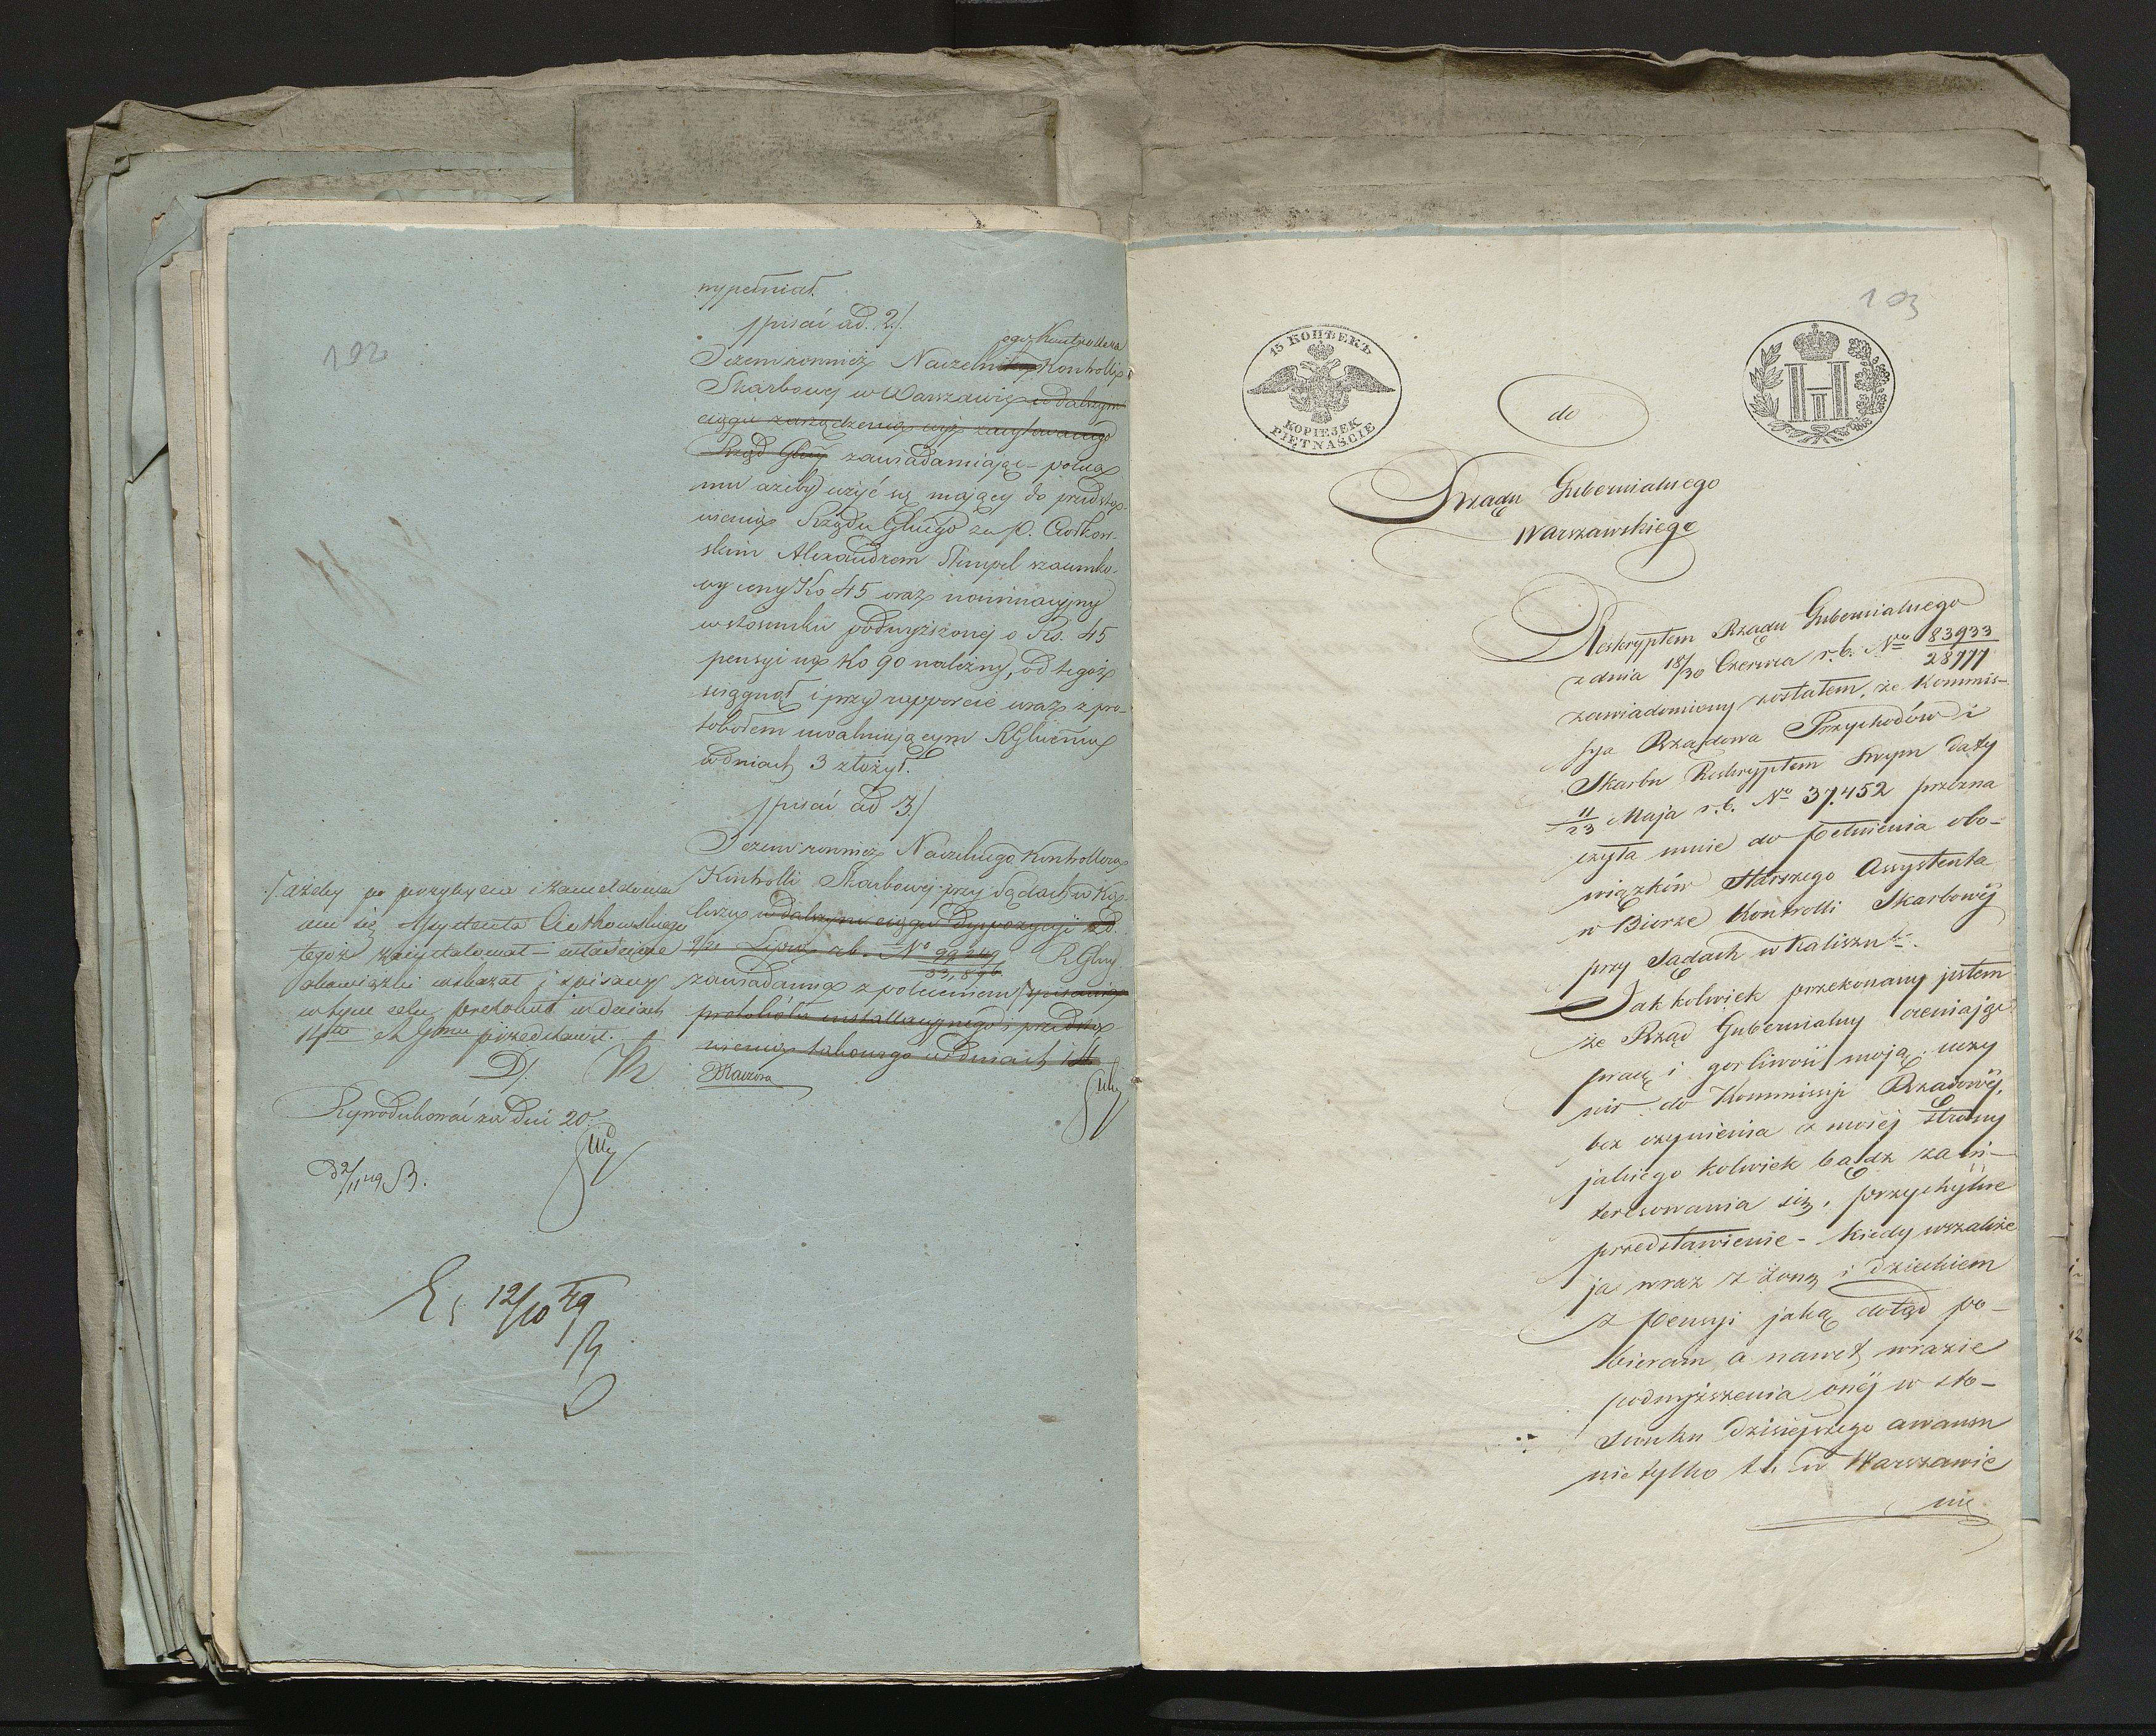 102
wypełniał.
/pisać ad. 2/.
Tezem rownież Naczelnikowi Kontrolli
ego Kontrollera
Skarbowej w Warszawie w dalszym
ciągu zarządzenia wyż zacytowanego
Rząd Glny zawiadamiając – poleca
mu ażeby użyć się mający do przedsta-
wienia Rządu Glnego za p. Ciotkow-
skim Alexandrem Stempel szacunko-
wy ceny Ko 45 oraz nominacyjny
w stosunku podwyższonej o Rs. 45
pensyi na Ko 90 należny, od tegoż
ściągnął i przy rapporcie wraz z pro-
tokołem uwalniającym RGlnemu
w dniach 3 złożył.
/pisać ad 3./
Tezem rownież Naczelnego Kontrollera
Kontrolli Skarbowej przy Sądach w Ka-
liszu w dalszym ciągu dyspozycyi z d.
9/21 Lipca r.b. No 99249/33,896 RGlny
zawiadamia z poleceniem /spisania
protokółu installacyjnego i przedsta-
wienia takowego w dniach 14
/. ażeby po przybyciu i zameldowa-
niu się Assystenta Ciotkowskiego
tegoż zainstalował – właściwe
obowiązki wskazał i spisany
w tym celu protokuł w dniach
14tu RGmu przedstawił.
Reprodukować za dni 20.
12/10 49
103
15 КОПѢЕКЪ
KOPIEJEK
PIĘTNAŚCIE
HI
do
Rządu Gubernialnego
Warszawskiego
Reskryptem Rządu Gubernialnego
z dnia 18/30 Czerwca r.b. No 83933/28777
zawiadomiony zostałem, że Kommis-
sya Rządowa Przychodów i
Skarbu Reskryptem Swym daty
11/23 Maja r.b. No 37.452 przezna
czyła mnie do pełnienia obo-
wiązków Starszego Assystenta
w Biurze Kontrolli Skarbowéj
przy Sądach w Kaliszu.
Jak kolwiek przekonany jestem
że Rząd Gubernialny oceniając
pracę i gorliwość moją uczy
nił do Kommissyi Rządowéj,
bez czynienia z mojéj strony
jakiego kolwiek bądz zain-
teresowania się, przychylne
przedstawienie – kiedy wszakże
ja wraz z żoną i dzieckiem
z pensyi jaką dotąd po-
bieram a nawet wrazie
podwyższenia onéj w sto-
sunku dzisiejszego awansu
nie tylko tu w Warszawie
nie